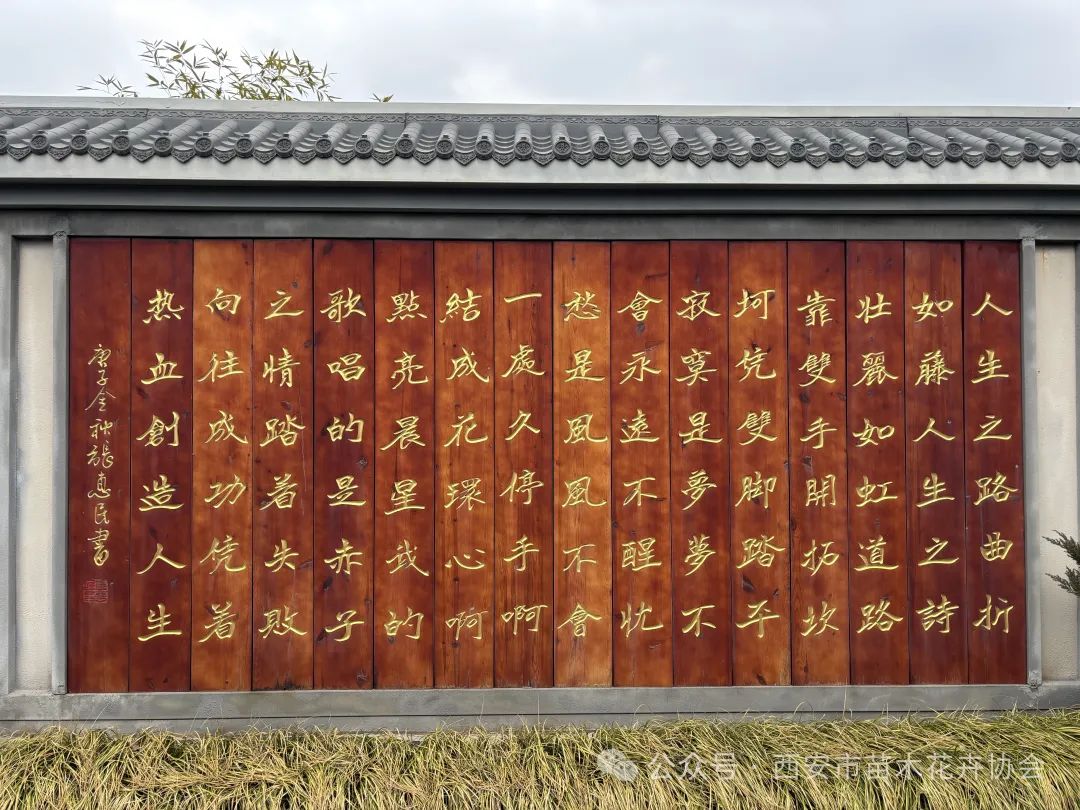 人生之路曲折
如藤人生之詩
壮麗如虹道路
靠雙手開拓坎
坷凭雙脚踏平
寂寞是夢夢不
會永遠不醒忧
愁是風風不會
一處久停手啊
結成花環心啊
點亮晨星我的
歌唱的是赤子
之情踏着失敗
向往成功凭着
热血創造人生
庚子金秋惠民書
公众号·西安市苗木花卉协会